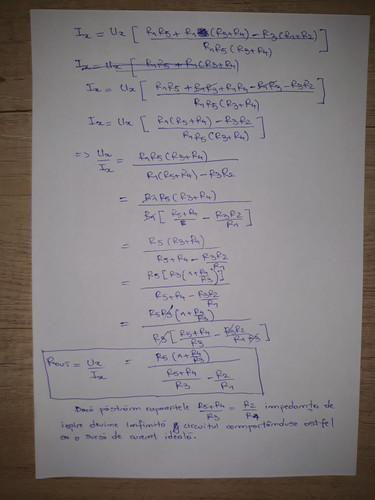 Ix = Ux [ (R1R5 + R1(R3+R4) − R3(R1+R2)) / (R1R5(R3+R4)) ]
Ix = Ux [ R1R5 + R1(R3+R4)
Ix = Ux [ (R1R5 + R1R3 + R1R4 − R1R3 − R3R2) / (R1R5(R3+R4)) ]
Ix = Ux [ (R1(R5+R4) − R3R2) / (R1R5(R3+R4)) ]
=> Ux/Ix = (R1R5(R3+R4)) / (R1(R5+R4) − R3R2)
= (R1R5(R3+R4)) / (R1[ R5+R4 − R3R2/R1 ])
= (R5(R3+R4)) / (R5+R4 − R3R2/R1)
= (R5[R3(1+R4/R3)]) / (R5+R4 − R3R2/R1)
= (R5R3(1+R4/R3)) / (R3[ (R5+R4)/R3 − R3R2/(R1R3) ])
Rout = Ux/Ix = (R5(1+R4/R3)) / ((R5+R4)/R3 − R2/R1)
Dacă păstrăm rapoartele (R5+R4)/R3 = R2/R1 impedanța de
ieșire devine infinită și circuitul comportânduse astfel
ca o sursă de curent ideală.